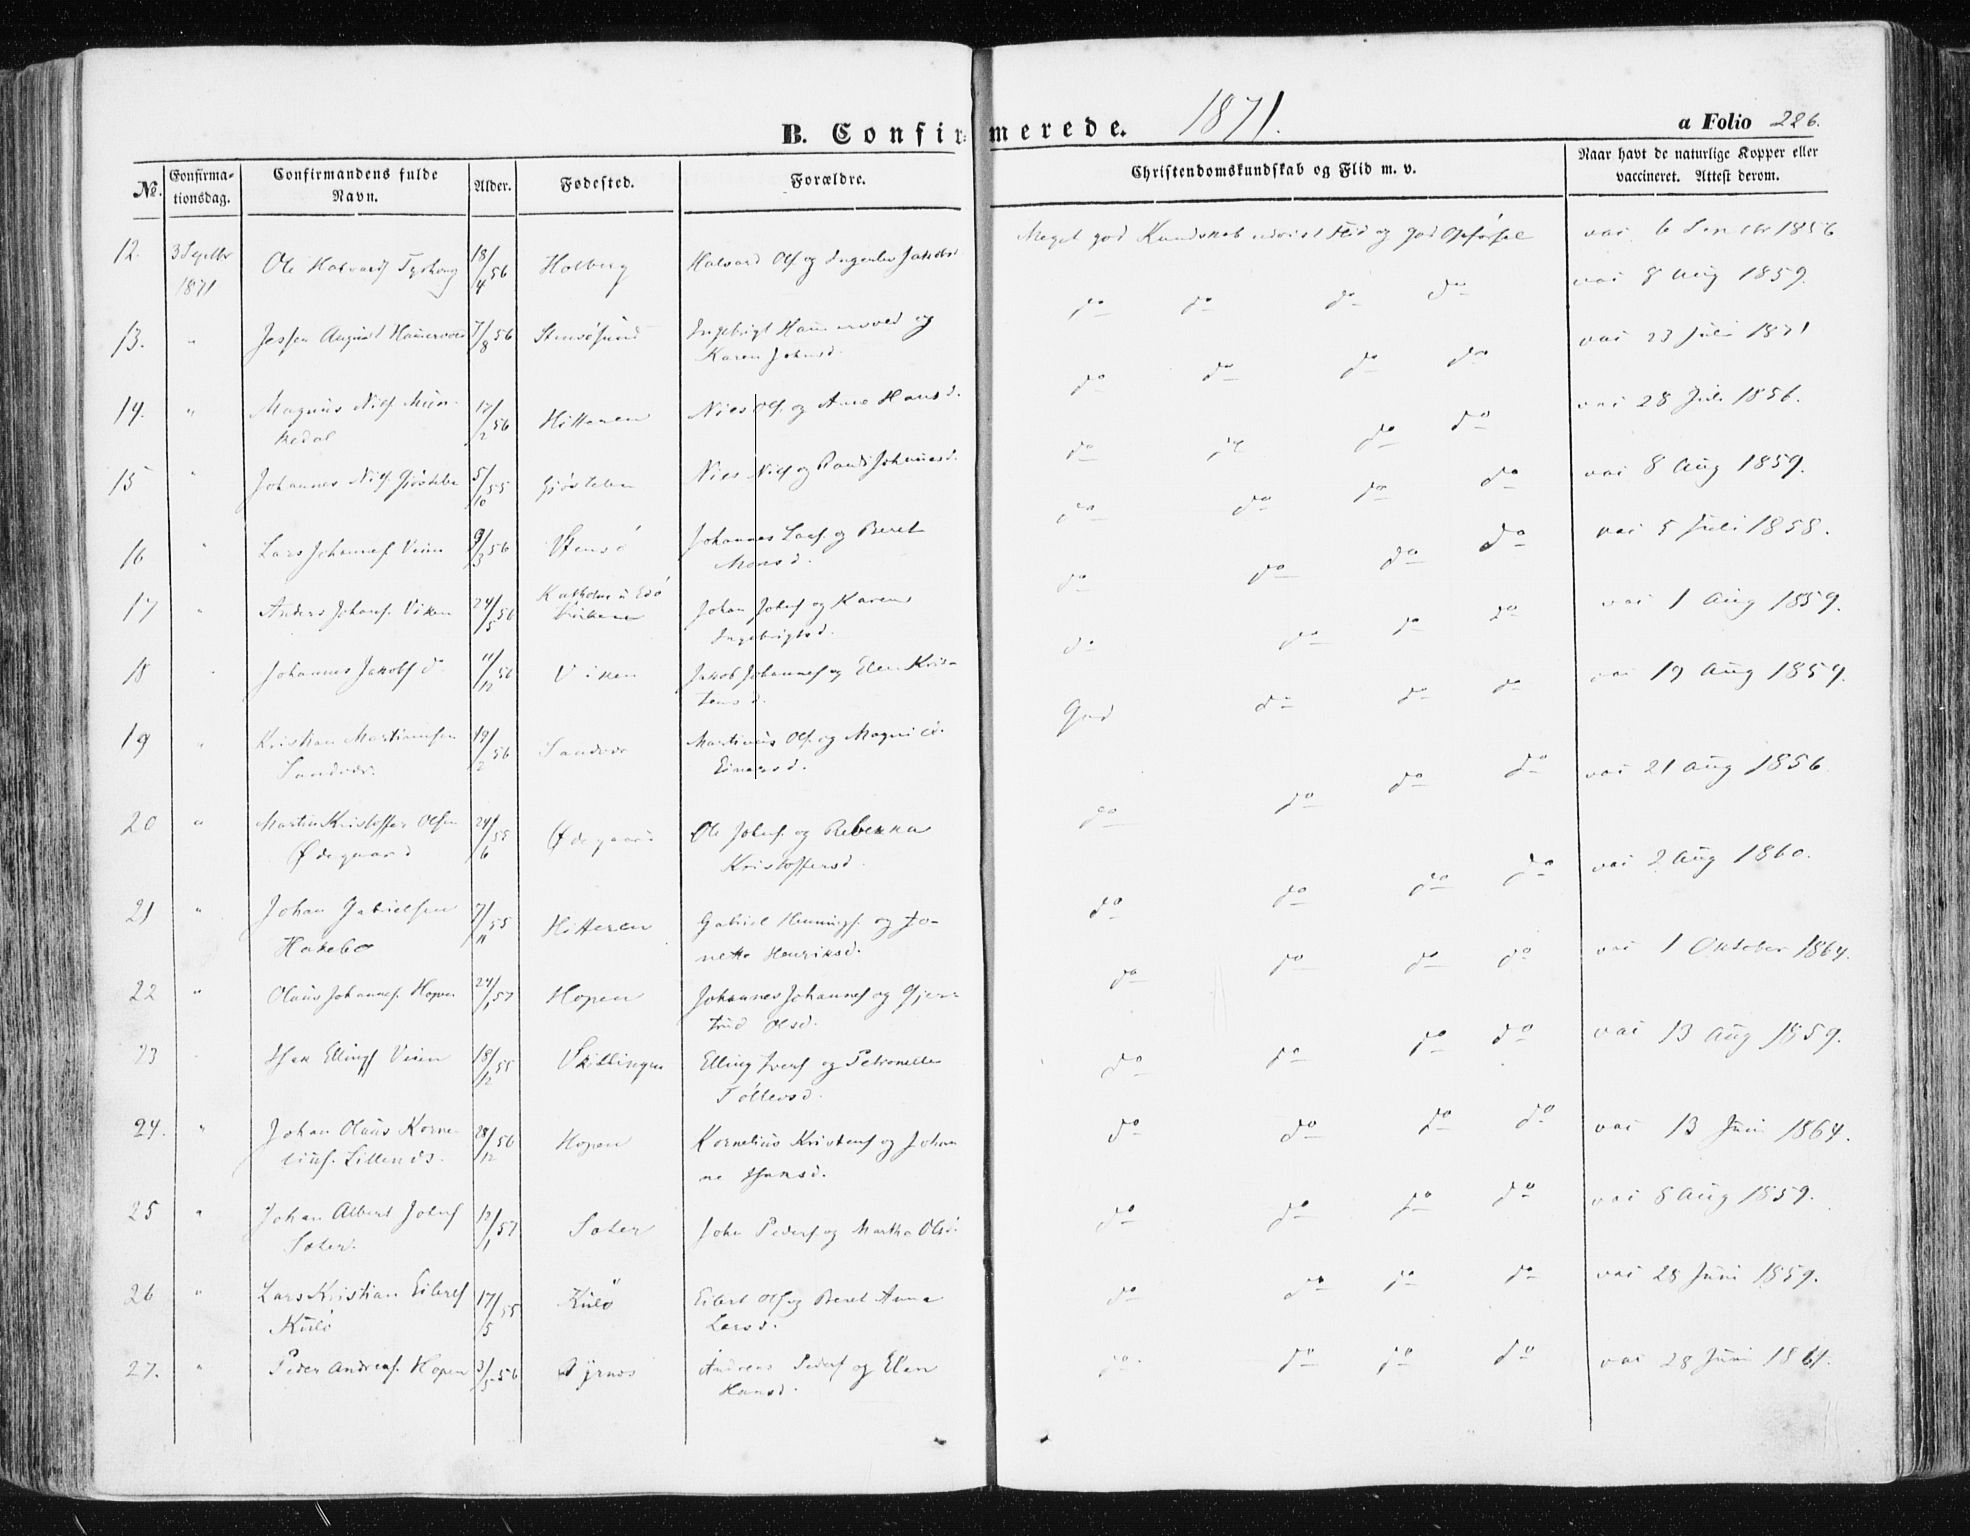 B. Confirmerede. 1871. a Folio 226.
No. Confirmationsdag. Confirmandens fulde Navn. Alder. Fødested. Forældre. Christendomskundskab og Flid m. v. Naar havt de naturlige Kopper eller vaccineret. Attest derom.
12. 3 Septbr 1871 Ole 18/4 56 Holberg Halvard Ols. og Meget god Kundskab udvist Flid og god Opførsel vac 6 1856
13. " August 7/8 56 Ingebrigt og do do do do vac 8 Aug 1859.
Karen Johnsd.
14. " Magnus Nils. 17/2 56 Hitteren Niels Ols. og Ane Hansd. do do do do vac 23 Juli 1871
15 " Johannes Nils. 5/10 55 Niels Nils. og Johannesd. do do do vac 28 Juli 1856.
16 " Lars Johannes. Veien 9/3 56 Stensø Johannes Lars. og Beret do do do do vac 8 Aug 1859.
Monsd.
17 " Anders Johans. Viken 24/5 56 Johan Johns. og Karen do do do do vac 5 Juli 1858.
Ingebrigtsd.
18 Johannes Jakobs. do 11/12 56 Viken Jakob Johannes. og Elen Kris- do do do do vac 1 Aug 1859.
tensd.
19 " Kristian Martinussen 19/2 56 Martinus Ols. og God do do do vac 19 Aug 1859.
Einarsd.
20 " Martin Kristoffer Olsen 24/6 55 Ødegaard Ole Johns. og Rebekka do do do do vac 21 Aug 1856
Ødegaard Kristoffersd.
21 " Johan Gabrielsen 7/11 55 Hitteren Gabriel Hennings. og Jo- do do do do vac 2 Aug 1860.
Hakebo nette Henriksd.
22 " Olaus Johannes. Hopen 24/1 57 Hopen Johannes Johannes. og Gjer- do do do do vac 1 Oktober 1864.
trud Olsd.
23 Ellings. Veien 18/12 55 Skillingen Elling Ivers. og Petronelle do do do do vac 13 Aug 1859.
Tollevsd.
24. " Johan Olaus Korne- 28/12 56 Hopen Kornelius Kristens. og Johan- do do do do vac 13 Juni 1864.
lius. ne
25 " Johan Albert Johns. 12/1 57 Sæter John Peders. og Martha Olsd. do do do do vac 8 Aug 1859.
Sæter.
26 " Lars Kristian Eilerts. 17/5 55 Kulø Eilert Ols. og Beret Anna do do do do vac 28 Juni 1859.
Kulø Larsd.
27. " Peder Andreas. Hopen 3/3 56 Dyrnes Andreas Peders. og Elen do do do do vac 28 Juni 1861.
Hansd.